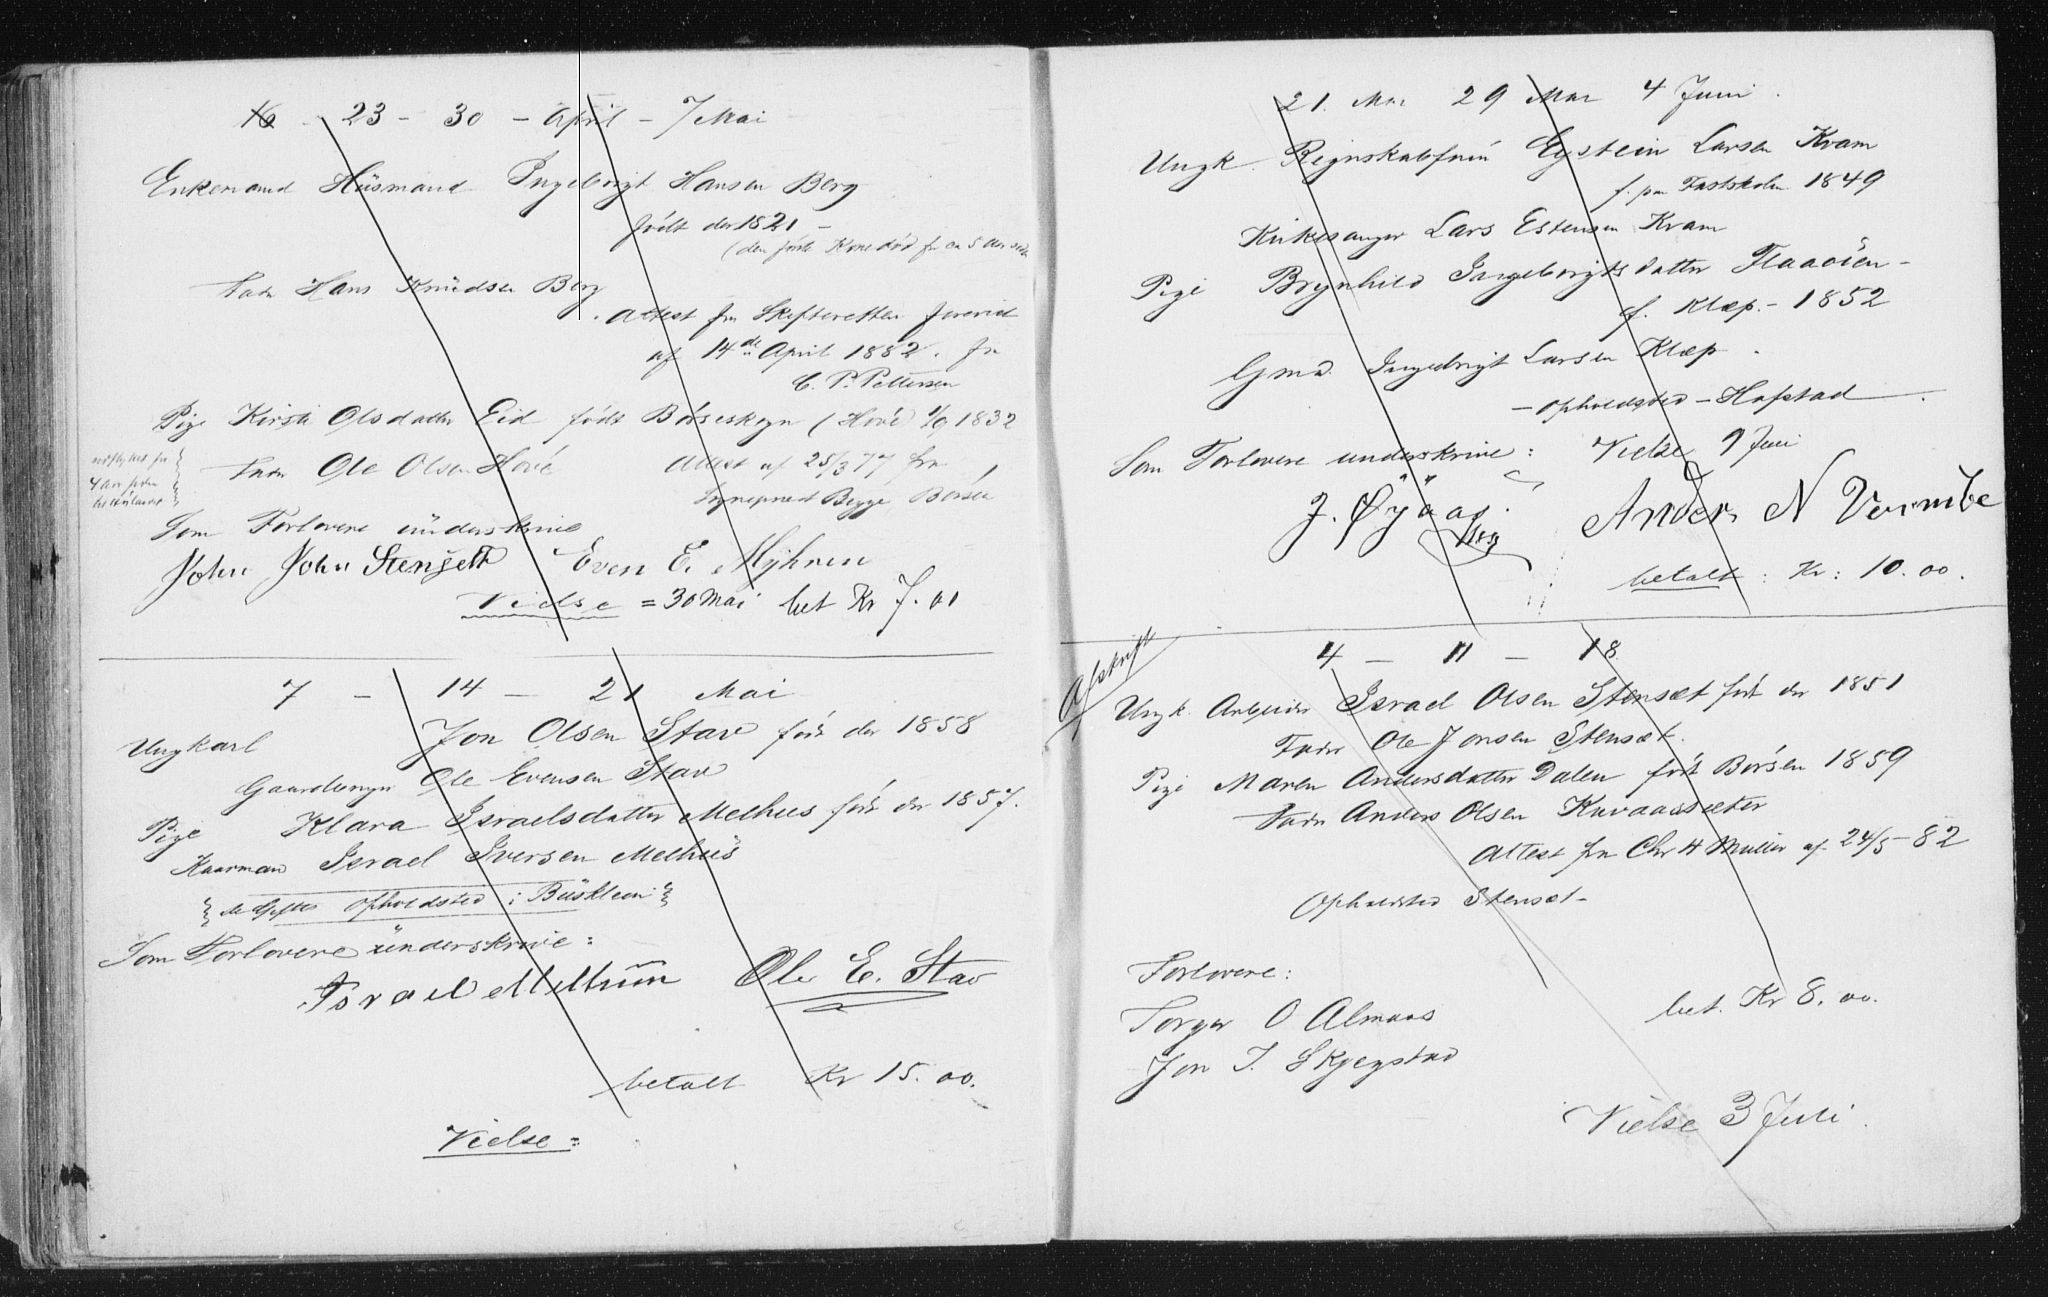 16 - 23 - 30 - April - 7 Mai
Enkemand Hüsmand Ingebrigt Hansen Berg
født der 1821 -
(den første Kone død for ca 5 Aar siden
Fader Hans Knudsen Berg
Attest fra Skifteretten foreviist
af 14de April 1882. fra
C. P. Pettersen
Pige Kirsti Olsdatter Eid født Børseskogn (Hové) 1/9 1832
indflyttet fra
4 Aar siden
Fader Ole Olsen Hové
Attest af 25/3 77 fra
Sognepræst Bugge, Børsen
Som Forlovere ünderskrive
John John Stenseth Even E. Mÿhren
Vielse = 30 Mai bet Kr 7. 01
7 - 14 - 21 Mai
Ungkarl Jon Olsen Stav født der 1858
Gaardbruger Ole Evensen Stav
Pige Klara Israelsdatter Melhus født der 1857.
Kaarmand Israel Iversen Melhüs
de Giftes Opholdsted i Büsklein
Som Forlovere ünderskrive:
Israel Melhuus Ole E. Stav
betalt Kr 15. 00.
Vielse =
21. Mai 29 Mai 4 Juni.
Ungk. Regnskabsfører Eystein Larsen Kvam
f. paa Fastskolen 1849
Kirkesanger Lars Estensen Kvam
Pige Brynhild Ingeborgtsdatter Flaaøien -
f. Klæp. - 1852
Gmd. Ingebrigt Larsen Klæp.
- Opholdsted - Hofstad
Som Forlovere underskrive: Vielse 9 Juni
J. Øÿaas. Anders N Vormbe
betalt: Kr: 10. 00.
Afskrift
4 - 11 - 18
Ungk. Arbeider Israel Olsen Stensæt født der 1851
Fader Ole Jonsen Stensæt.
Pige Maren Andersdatter Dalen født Børsen 1859
Fader Anders Olsen Kuvaassæter
Attest fra Chr H Müller af 24/5 - 82
Opholdsted Stensæt -
Forlovere:
bet. Kr 8. 00.
Torger O Almaas
Jon J. Skjegstad
Vielse 3 Juli.